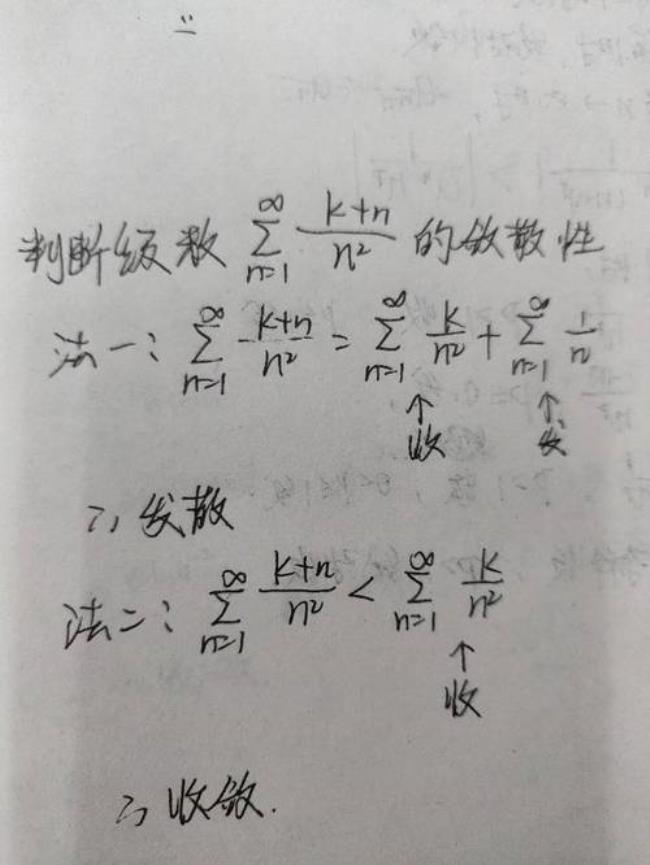 判断级数 ∑_{n=1}^{∞} (k+n)/n² 的敛散性
法一: ∑_{n=1}^{∞} (k+n)/n² = ∑_{n=1}^{∞} k/n² + ∑_{n=1}^{∞} 1/n
↑ ↑
收 发
∴ 发散
法二: ∑_{n=1}^{∞} (k+n)/n² < ∑_{n=1}^{∞} k/n²
↑
收
∴ 收敛.